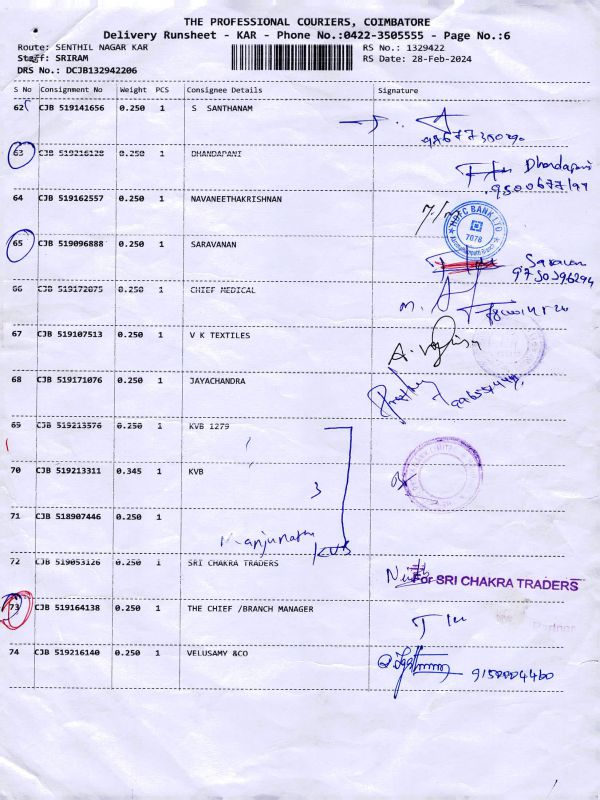 THE PROFESSIONAL COURIERS, COIMBATORE
Delivery Runsheet - KAR - Phone No.:0422-3505555 - Page No.:6
Route: SENTHIL NAGAR KAR RS No.: 1329422
Staff: SRIRAM RS Date: 28-Feb-2024
DRS No.: DCJB132942206
S No Consignment No Weight PCS Consignee Details Signature
62 CJB 519141656 0.250 1 S SANTHANAM
63 CJB 519216128 0.250 1 DHANDAPANI
Dhandapani
64 CJB 519162557 0.250 1 NAVANEETHAKRISHNAN
HDFC BANK LTD
7078
65 CJB 519096888 0.250 1 SARAVANAN
Saravan
66 CJB 519172075 0.250 1 CHIEF MEDICAL
67 CJB 519107513 0.250 1 V K TEXTILES
68 CJB 519171076 0.250 1 JAYACHANDRA
69 CJB 519213576 0.250 1 KVB 1279
70 CJB 519213311 0.345 1 KVB
3
71 CJB 518907446 0.250 1
Manjunath
KVB
72 CJB 519053126 0.250 1 SRI CHAKRA TRADERS
For SRI CHAKRA TRADERS
73 CJB 519164138 0.250 1 THE CHIEF /BRANCH MANAGER
Partner
74 CJB 519216140 0.250 1 VELUSAMY &CO